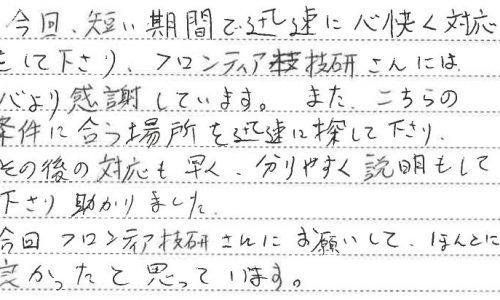 今回、短い期間で迅速に心快く対応
をして下さり、フロンティア技研さんには
心より感謝しています。また、こちらの
条件に合う場所を迅速に探して下さり、
その後の対応も早く、分りやすく説明もして
下さり助かりました。
今回フロンティア技研さんにお願いして、ほんとに
良かったと思っています。